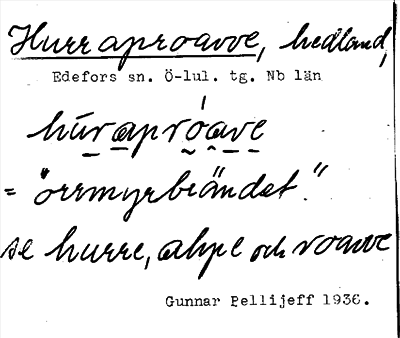 Hurraproavve, hedland,
Edefors sn. Ö-lul. tg. Nb län
húrapróave
= "örrmyrbrändet."
se hurre, ahpe och roavve
Gunnar Pellijeff 1936.